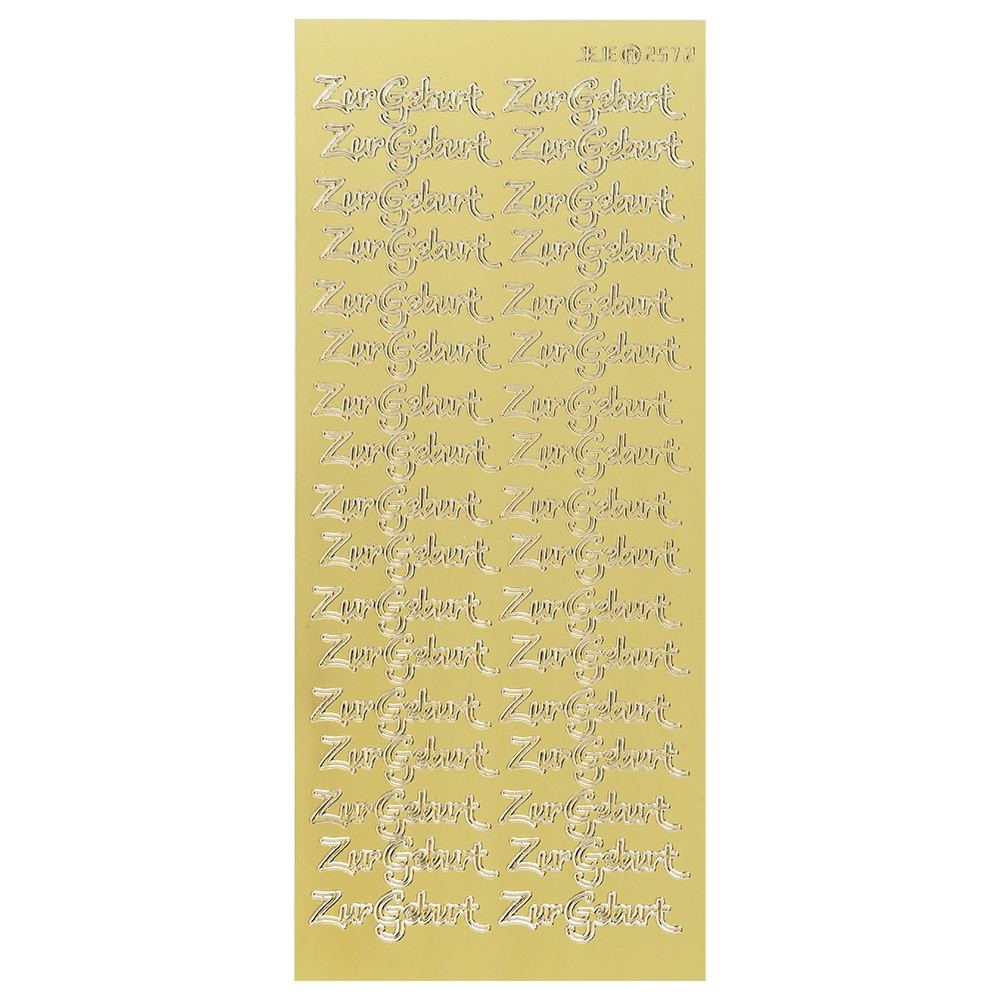 JEJE® 2572
Zur Geburt Zur Geburt
Zur Geburt Zur Geburt
Zur Geburt Zur Geburt
Zur Geburt Zur Geburt
Zur Geburt Zur Geburt
Zur Geburt Zur Geburt
Zur Geburt Zur Geburt
Zur Geburt Zur Geburt
Zur Geburt Zur Geburt
Zur Geburt Zur Geburt
Zur Geburt Zur Geburt
Zur Geburt Zur Geburt
Zur Geburt Zur Geburt
Zur Geburt Zur Geburt
Zur Geburt Zur Geburt
Zur Geburt Zur Geburt
Zur Geburt Zur Geburt